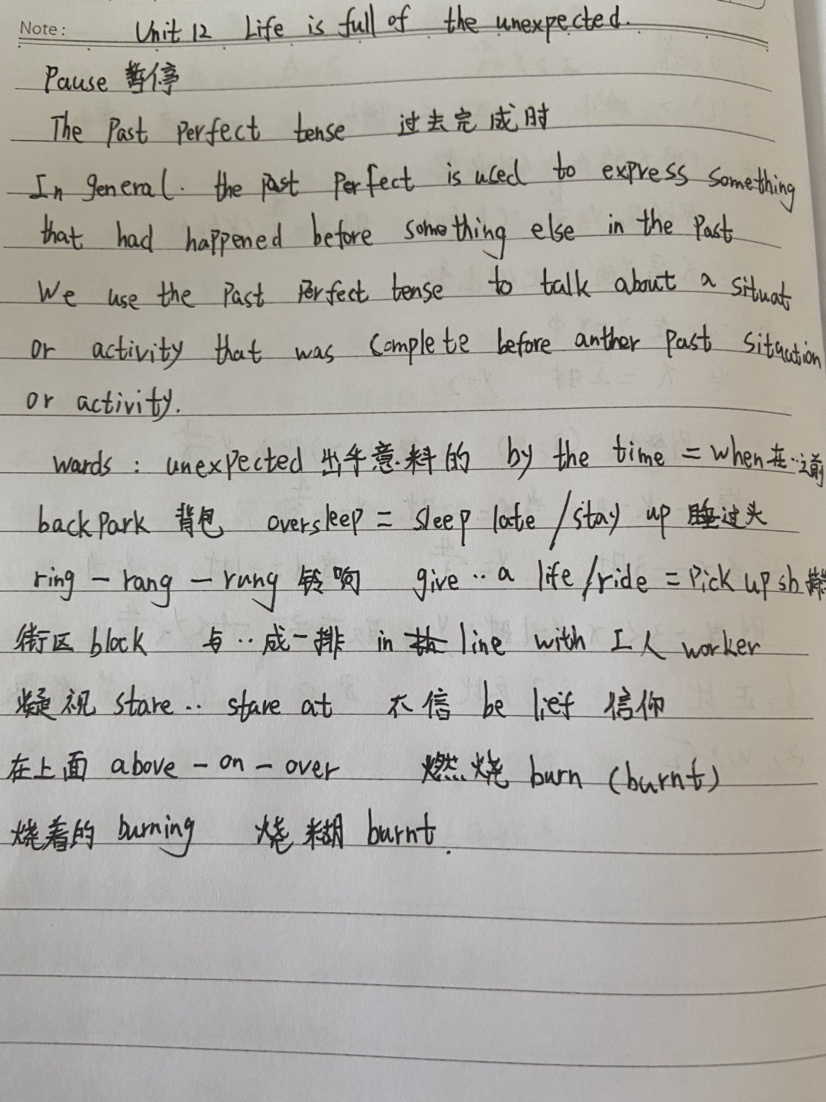 Note: Unit 12 Life is full of the unexpected.
Pause 暂停
The Past Perfect tense 过去完成时
In general. the past Perfect is used to express something
that had happened before something else in the Past
We use the Past Perfect tense to talk about a situat
or activity that was complete before anther Past situation
or activity.
wards : unexpected 出乎意料的 by the time = when 在··之前
backpark 背包 oversleep = sleep late / stay up 睡过头
ring - rang - rung 铃响 give ·· a life / ride = Pick up sb
街区 block 与··成一排 in line with 工人 worker
凝视 stare ·· stare at 不信 be lief 信仰
在上面 above - on - over 燃烧 burn (burnt)
烧着的 burning 烧糊 burnt.